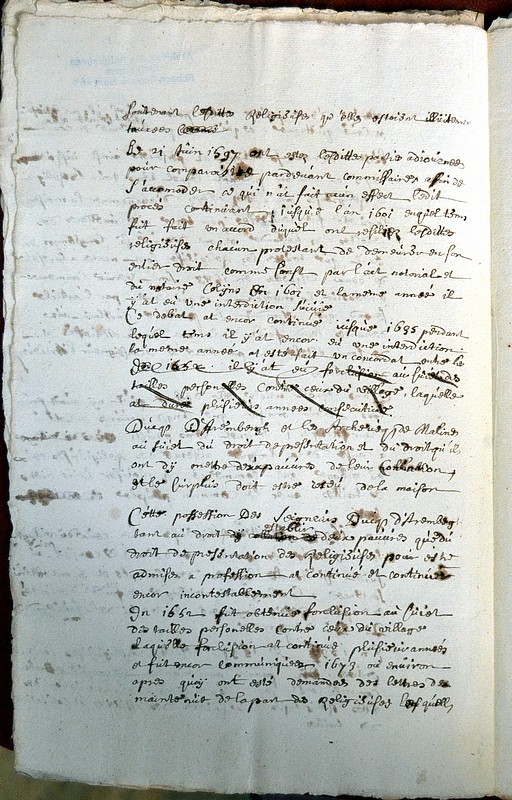 Soutenant lesdittes Religieuses qu'elles estoient illicitement
taxees
Le 21 Juin 1597 ont estez lesdittes parties adiournées
pour comparoistre pardevant commissaires afin de
s'accomoder ce qui n'at fait aucun effect ledit
proces continuant jusque l'an 1601 auquel tems
fut fait un accord duquel ont lesdittes
religieuses chacun protestant de demeurer en son
entier droit comme conste par l'act notorial et
du notaire en 1601 et la meme année il
y at eu une interdiction
Ce debat at encor continué jusque 1635 pendant
lequel tems il y at encor eu une interdiction
la meme année at esté fait un concordat entre le
De 1652 il y at eu forclusion au suiet des
tailles personelles contre ceux du village laquelle
at duré plusieurs années consecutive
Ducq D'Aremberghe et les Archevesqs de Malines
au suiet du droit de presentation et du droit qu'il
ont d'y mettre deux pauvres de leur
et le surplus doit estre de la maison
Cette possession des Seigneurs Ducqs d'Aremberg
tant au droit d'y establir de pauvres que du
droit de presentation des Religieuses pour estre
admises a profession at continué et continue
encor incontestablement
En 1652 fut obtenue forclusion au suiet
des tailles personelles contre ceux du village
laquelle forclusion at continué plusieurs années
et fut encor communiquée 1673 ou environ
apres quoy ont esté demandées des lettres de
maintenue de la part des Religieuses lesquelles